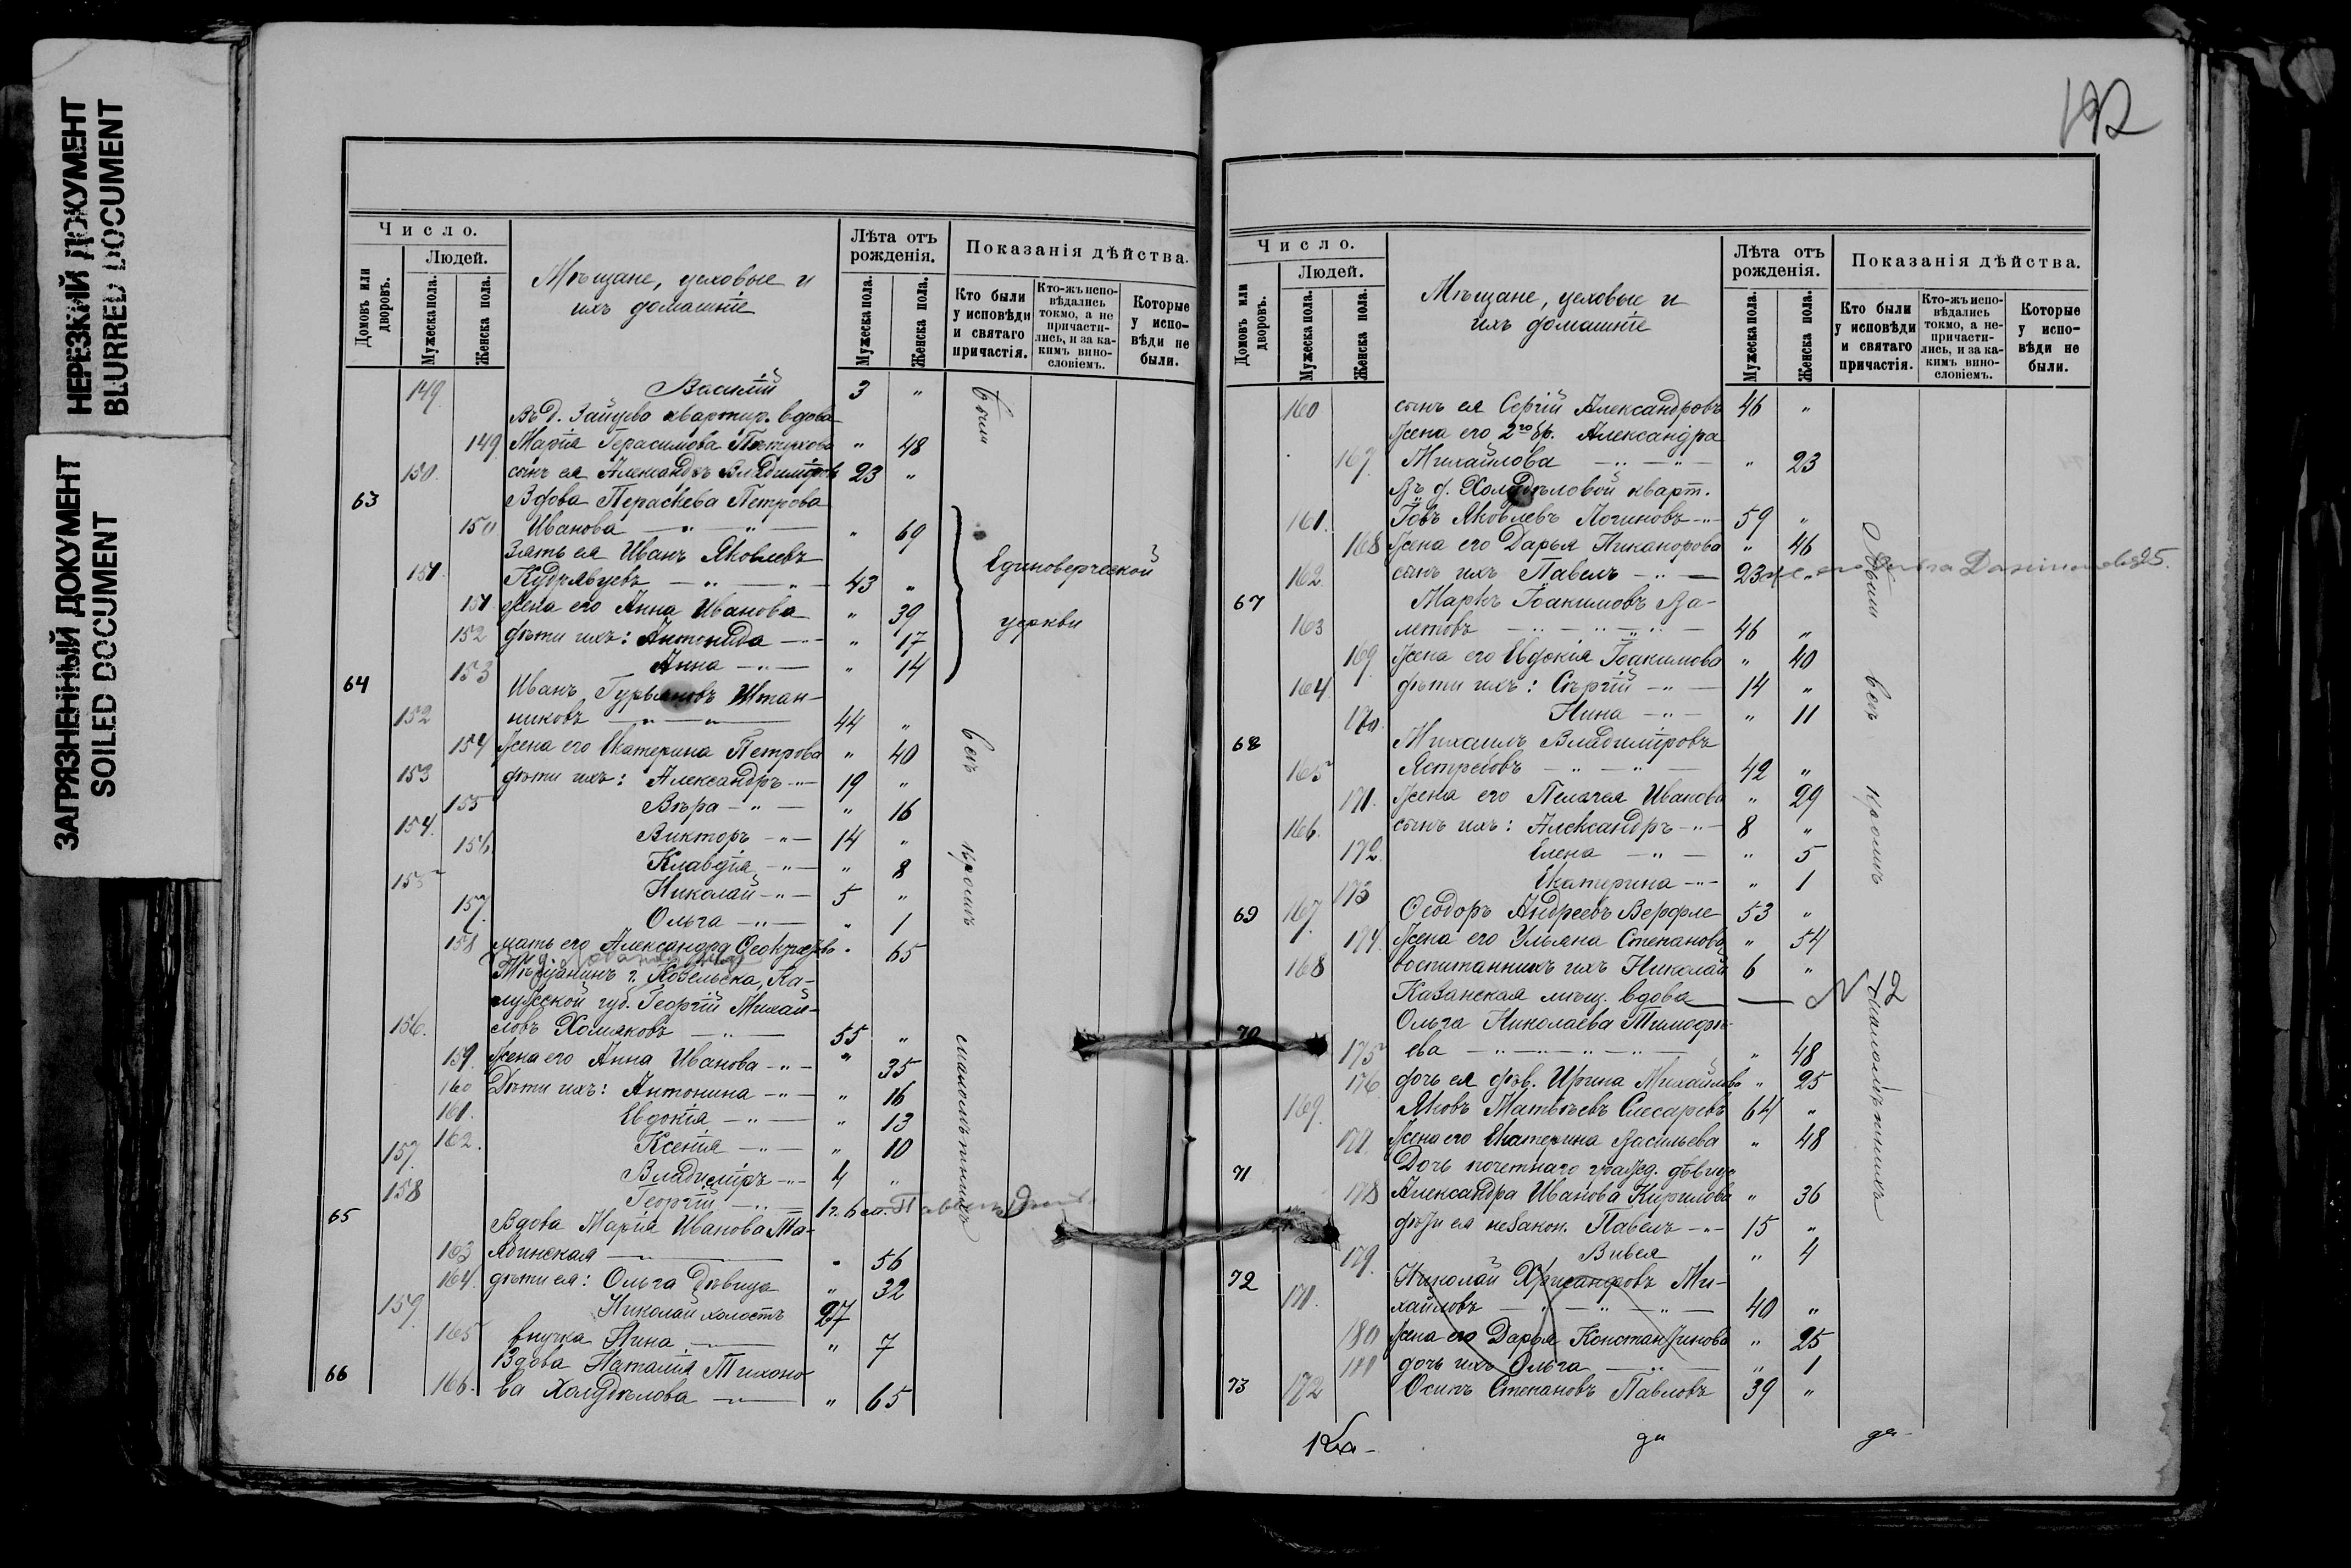 НЕРЕЗКИЙ ДОКУМЕНТ
BLURRED DOCUMENT
ЗАГРЯЗНЕННЫЙ ДОКУМЕНТ
SOILED DOCUMENT
Число.
Домовъ или дворовъ.
Людей.
Мужеска пола.
Женска пола.
Мѣщане, цеховые и
ихъ домашніе
Лѣта отъ рожденія.
Мужеска пола.
Женска пола.
Показанія дѣйства.
Кто были у исповѣди и святаго причастія.
Кто-жъ исповѣдались токмо, а не причастились, и за какимъ винословіемъ.
Которые у исповѣди не были.
149 Василій 3 "
Въ д. Зайцева квартир. вдова
149 Марія Герасимова Пѣтухова " 48
150. сынъ ея Александръ Владиміровъ 23 "
63 Вдова Параскева Петрова
150 Иванова — " — " — " 69
Зять ея Иванъ Яковлевъ
151. Кудрявцевъ — " — " — 43 "
151 жена его Анна Иванова " 39
152 дѣти ихъ: Антонида — " — " 17
153 Анна — " — " 14
Единоверческой
церкви
64 Иванъ Гурьяновъ Штан-
152 никовъ — " — " — 44 "
154 жена его Екатерина Петрова " 40
153 дѣти ихъ: Александръ — " — 19 "
155 Вѣра — " — " 16
154. Викторъ — " — 14 "
156 Клавдія — " — " 8
155 Николай — " — 5 "
157. Ольга — " — " 1
158 мать его Александра " 65
Мѣщанинъ г. Козельска, Ка-
лужской губ. Георгій Михай-
156. ловъ Хомяковъ — " — 55 "
159. жена его Анна Иванова — " — " 35
160 Дѣти ихъ: Антонина — " — " 16
161. Евдокія — " — " 13
162. Ксенія — " — " 10
157. Владиміръ — " — 4 "
158 Георгій — " — 1 г. 6 м. Павелъ
65 Вдова Марія Иванова
163 " 56
164. дѣти ея: Ольга дѣвица " 32
159. Николай холостъ 27
165 внучка Нина — " — " 7
66 Вдова Наталія Тихоно-
166. ва Холудѣлова — " — " 65
были
всѣ
кромѣ
малолѣтнихъ
192
Число.
Домовъ или дворовъ.
Людей.
Мужеска пола.
Женска пола.
Мѣщане, цеховые и
ихъ домашніе
Лѣта отъ рожденія.
Мужеска пола.
Женска пола.
Показанія дѣйства.
Кто были у исповѣди и святаго причастія.
Кто-жъ исповѣдались токмо, а непричастились, и за какимъ винословіемъ.
Которые у исповѣди не были.
160 сынъ ея Сергій Александровъ 46 "
жена его 2го бр. Александра
167. Михайлова — " — " — " 23
Въ д. Холудѣловой кварт.
161. Іовъ Яковлевъ Логиновъ — " — 59 "
168 жена его Дарья Никанорова " 46
162. сынъ ихъ Павелъ — " — 23 " 25.
67 Маркъ Іоакимовъ За-
163 летовъ — " — " — " — 46 "
169. жена его Евдокія Іоакимова " 40
164. дѣти ихъ: Сергій — " — 14 "
170. Нина — " — " 11
68 Михаилъ Владиміровъ
165 Ястребовъ — " — " — 42 "
171. жена его Пелагея Иванова " 29
166. сынъ ихъ: Александръ — " — 8 "
172. Елена — " — " 5
173 Екатерина — " — " 1
69 167. Ѳеодоръ Андреевъ Верфле 53 "
174. жена его Ульяна Степанова " 54
168 воспитанникъ ихъ Николай 6 "
Казанская мѣщ. вдова — N 12
70 Ольга Николаева Тимофѣ-
175 ева — " — " — " — " 48
176. дочь ея дѣв. Ирина Михайлова " 25
169. Яковъ Матвѣевъ Слесаревъ 64 "
177. жена его Екатерина Васильева " 48
71 Дочь почетнаго гражд. дѣвица
178 Александра Иванова Кирилова " 36
дѣти ея незакон. Павелъ — " — 15 "
179. Вивея " 4
72 Николай Хрисанфовъ Ми-
171. хайловъ — " — " — " — 40 "
180 жена его Дарья Константинова " 25
181 дочь ихъ Ольга — " — " 1
73 172 Осипъ Степановъ Павловъ 39 "
были
всѣ
кромѣ
малолѣтнихъ